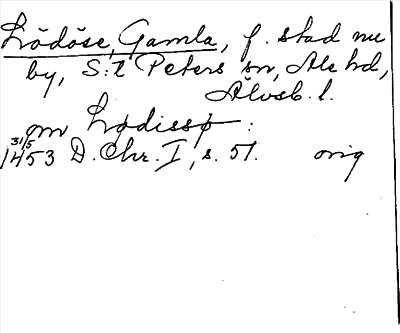 Lödöse, Gamla, f. stad nu
by, S:t Peters sn, Ale hd,
Älvsb. l.
om Lødissø :
31/5 1453 D. Chr. I, s. 51. orig